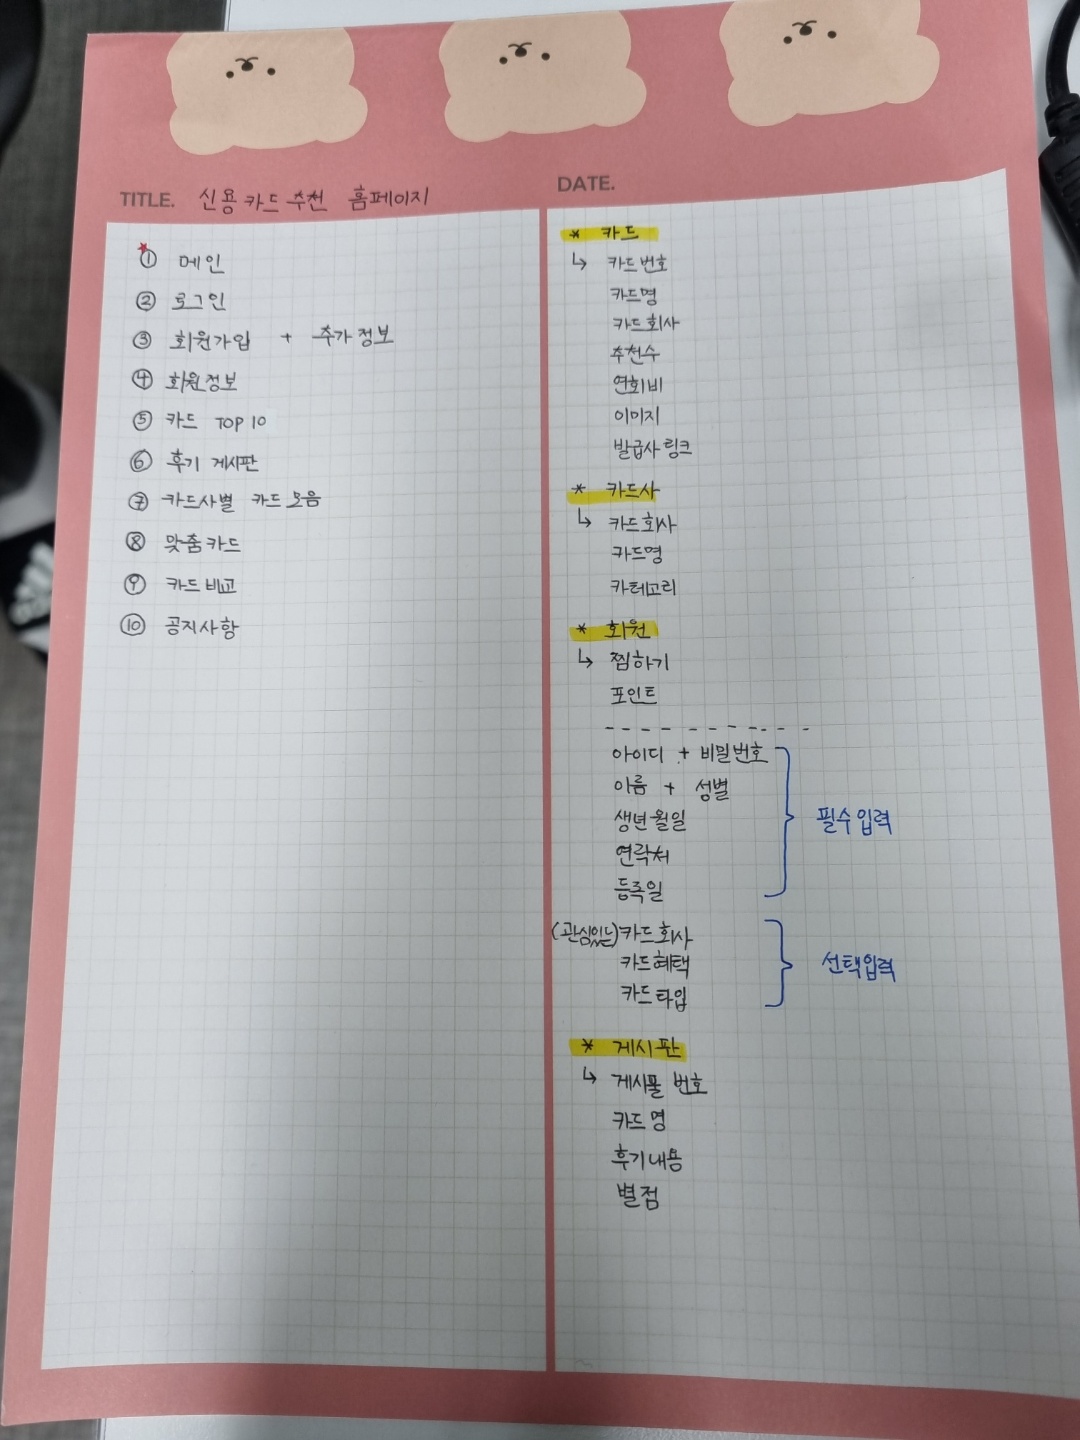 TITLE. 신용카드 추천 홈페이지
① 메인
② 로그인
③ 회원가입 + 추가정보
④ 회원정보
⑤ 카드 TOP 10
⑥ 후기 게시판
⑦ 카드사별 카드 모음
⑧ 맞춤카드
⑨ 카드 비교
⑩ 공지사항
DATE.
* 카드
↳ 카드번호
카드명
카드회사
추천수
연회비
이미지
발급사 링크
* 카드사
↳ 카드회사
카드명
카테고리
* 회원
↳ 찜하기
포인트
아이디 + 비밀번호
이름 + 성별
생년월일
연락처
등록일
필수입력
(관심있는) 카드회사
카드혜택
카드타입
선택입력
* 게시판
↳ 게시물 번호
카드명
후기내용
별점